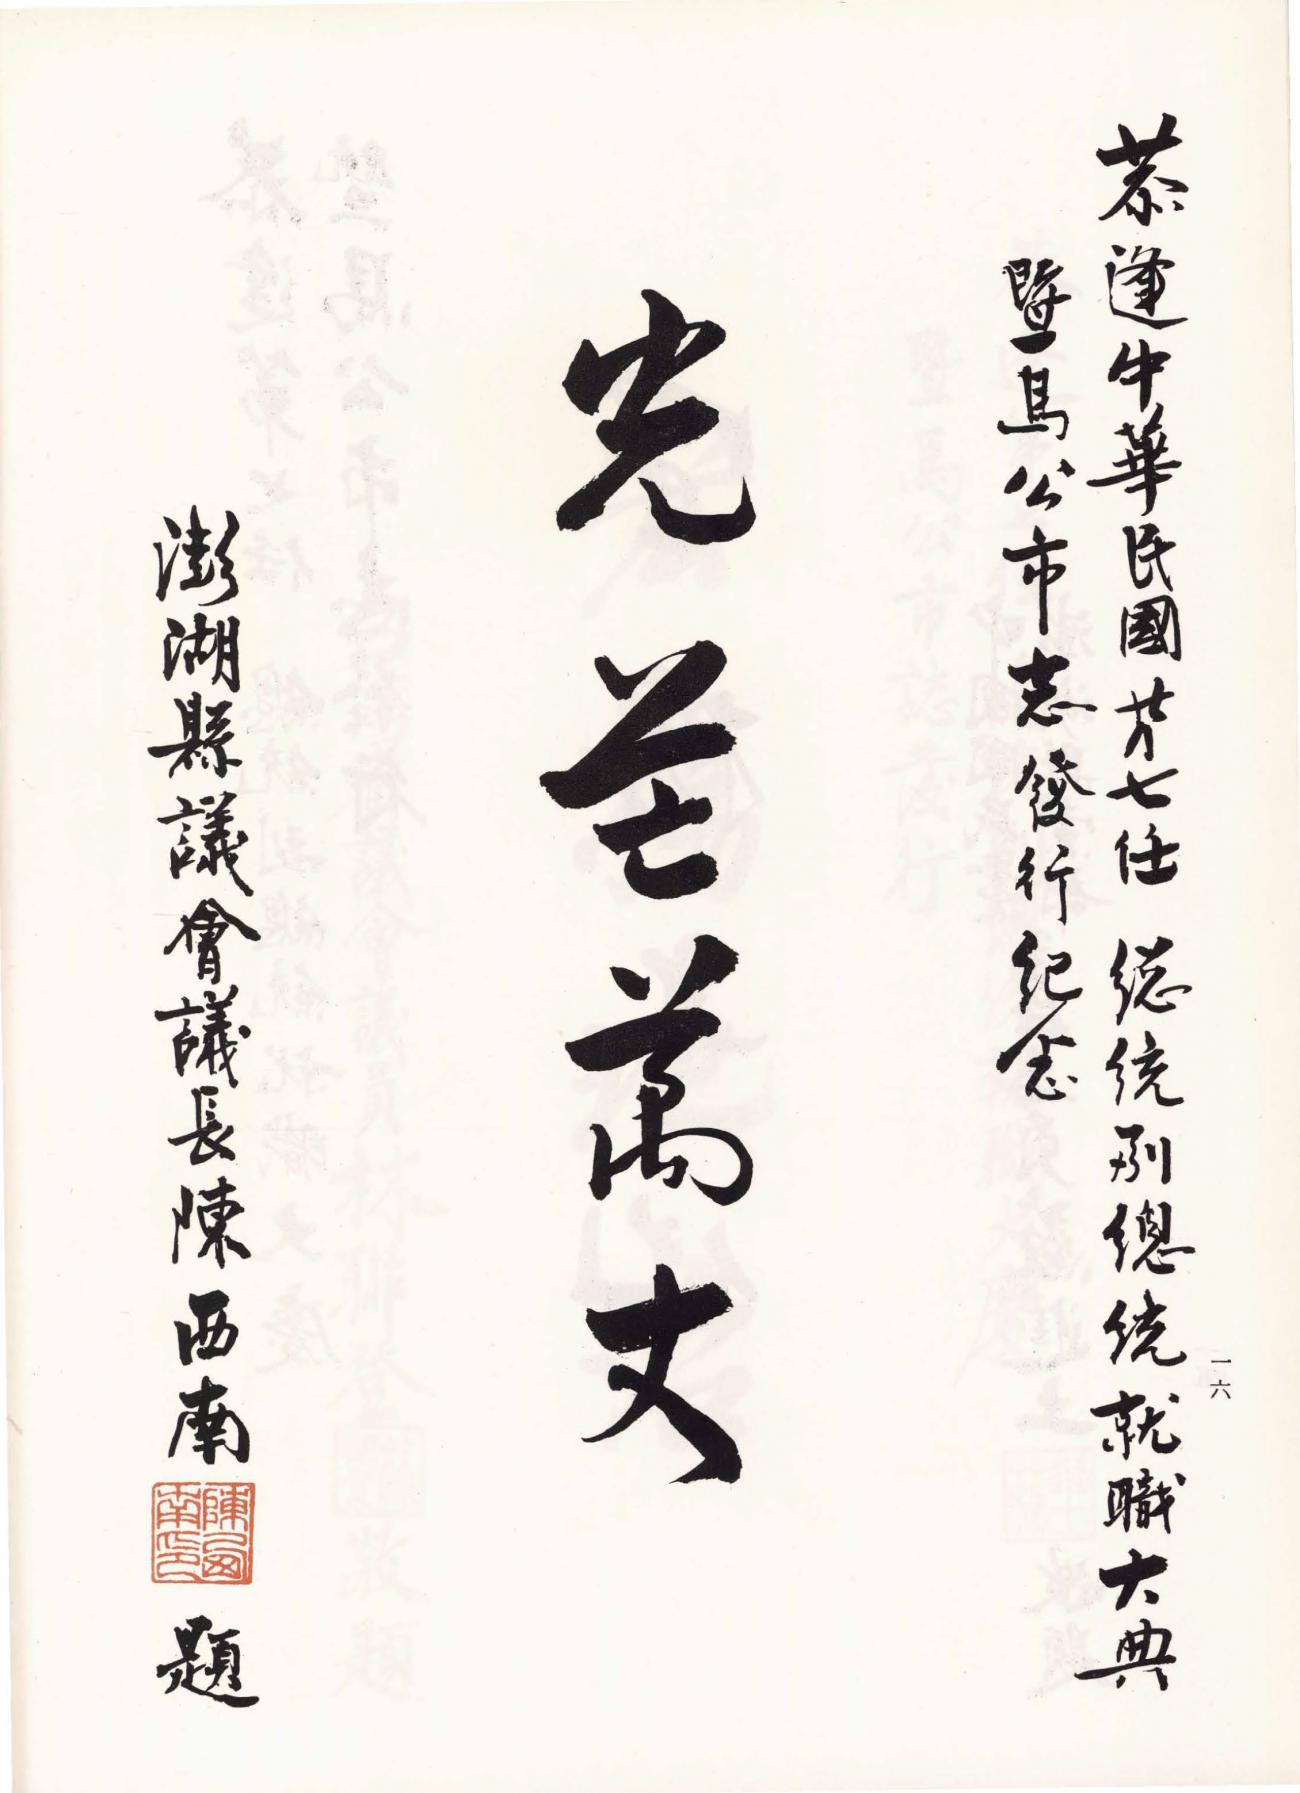 恭逢中華民國第七任　總統副總統就職大典
暨馬公市志發行紀念
光芒萬丈
澎湖縣議會議長陳西南
陳西南印
題
一六